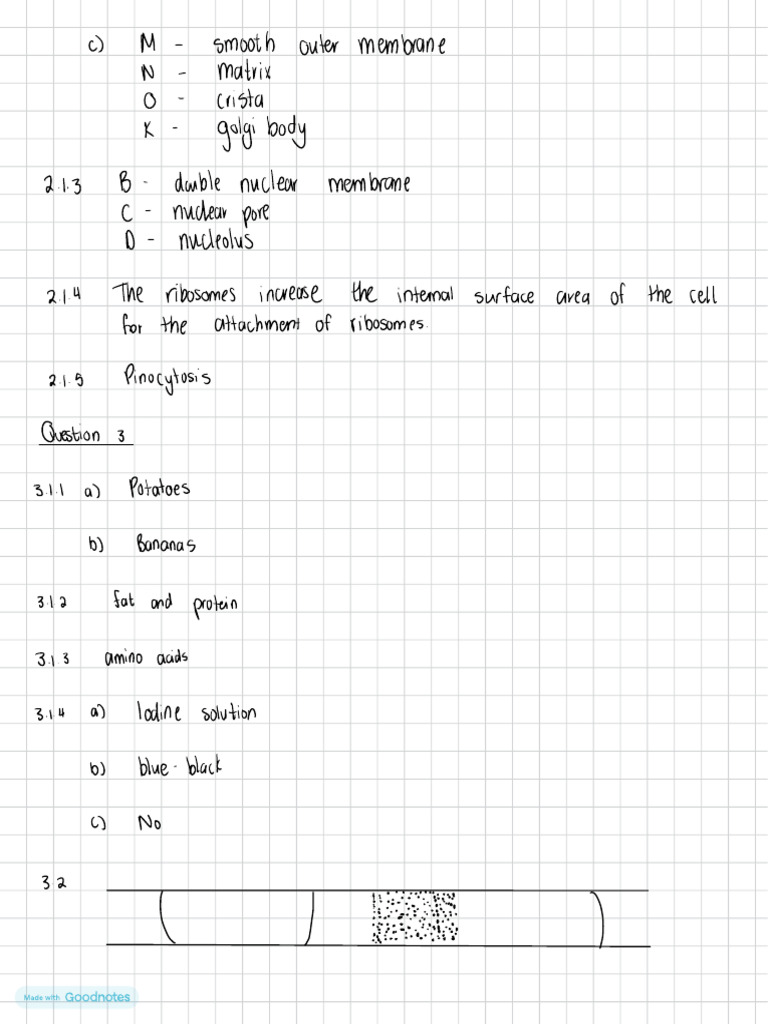 c) M - smooth outer membrane
N - matrix
O - crista
K - golgi body
2.1.3 B - double nuclear membrane
C - nuclear pore
D - nucleolus
2.1.4 The ribosomes increase the internal surface area of the cell
for the attachment of ribosomes.
2.1.5 Pinocytosis
Question 3
3.1.1 a) Potatoes
b) Bananas
3.1.2 fat and protein
3.1.3 amino acids
3.1.4 a) Iodine solution
b) blue-black
c) No
3.2
Made with Goodnotes